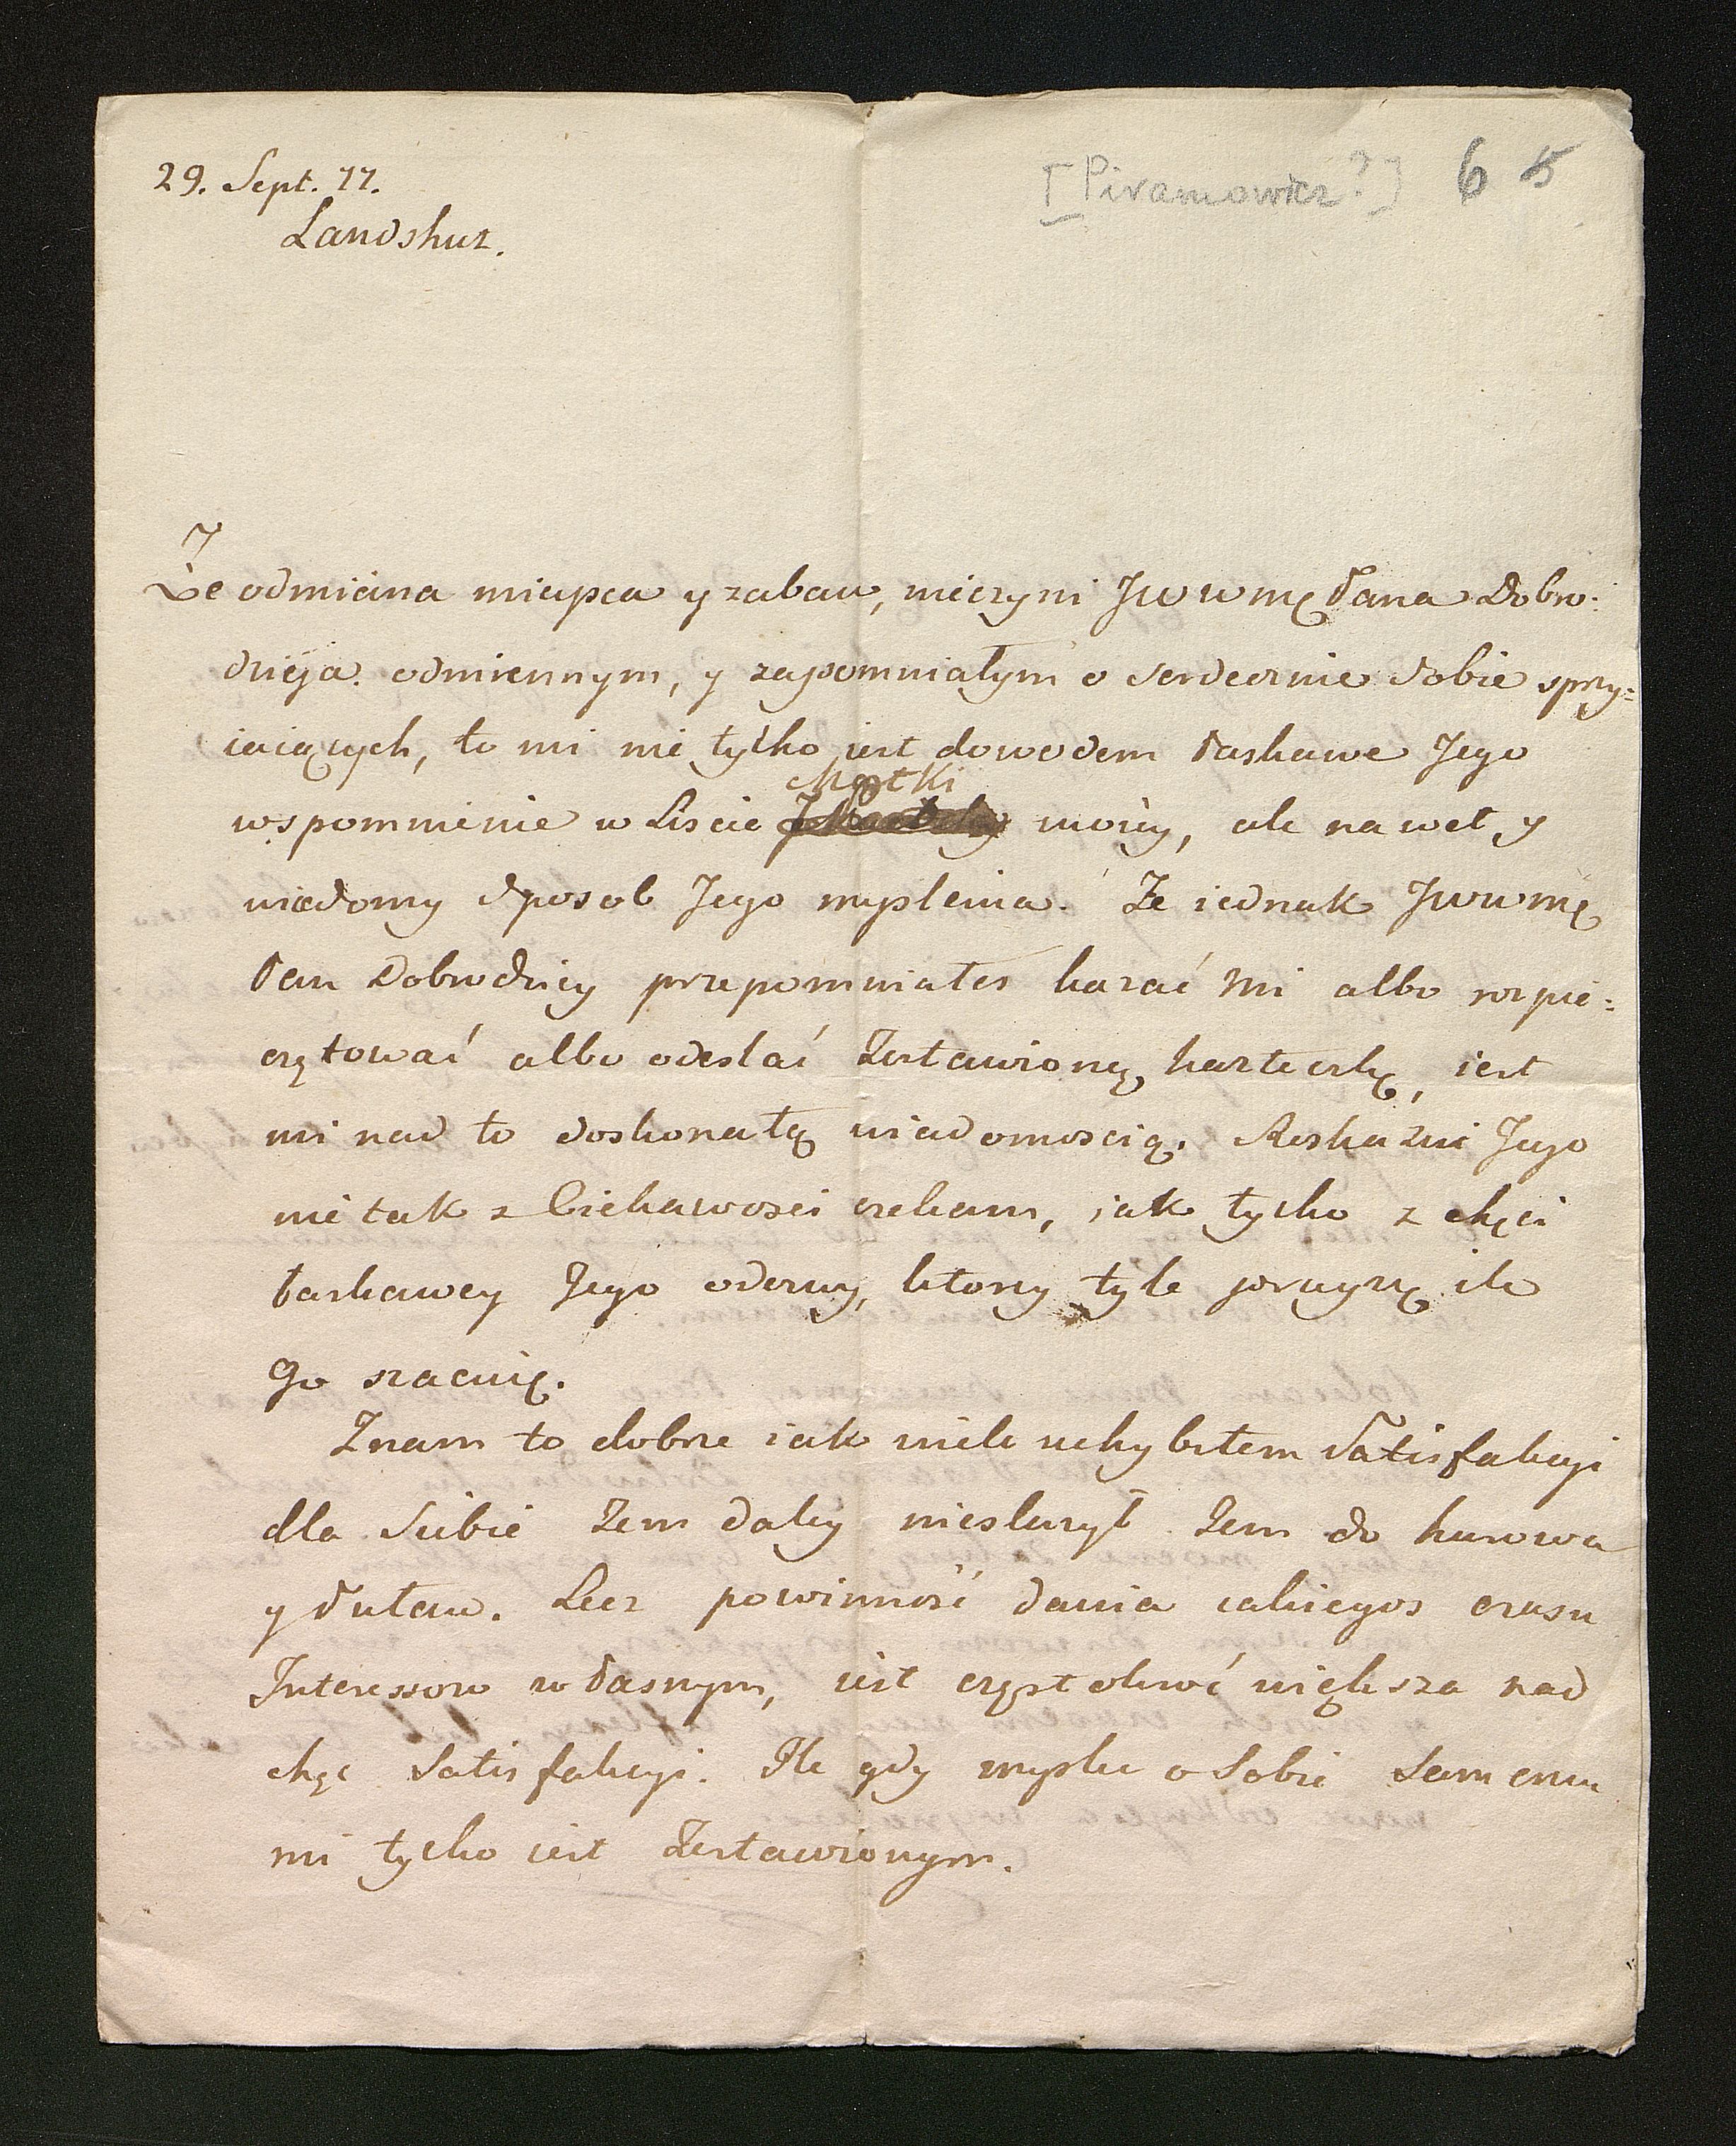 29. Sept. 77.
[Piramowicz?] 6 5
Landshut.
Że odmiana mieysca y zabaw, nieczyni JWWmę Pana Dobro:
dzieja odmiennym, y zapomniałym o serdecznie sobie sprzy:
iaiących, to mi nie tylko jest dowodem łaskawe Jego
Matki
wspomnienie w Liscie moiey, ale nawet y
wiadomy sposob Jego myslenia. Że iednak JWWmę
Pan Dobrodziey przepomniałes kazać mi albo rozpie:
czętować albo odesłać zostawioną karteczkę, iest
mi nad to doskonałą wiadomoscią. Roskazu Jego
nie tak z Ciekawosci czekam, iak tylko z chęci
łaskawey Jego odezwy, ktory tyle sprzyię ile
Go szacuię.
Znam to dobrze iak wiele uchybiłem Satisfakcyi
dla Siebie żem daley niesłużył żem do Kurowa
y Puław. Lecz powinność dania iakiegos czasu
Interessow własnym, iest częstokroć większa nad
chęć Satisfakcyi. Ile gdy myslic o Sobie Samemu
mi tylko iest zostawionym.